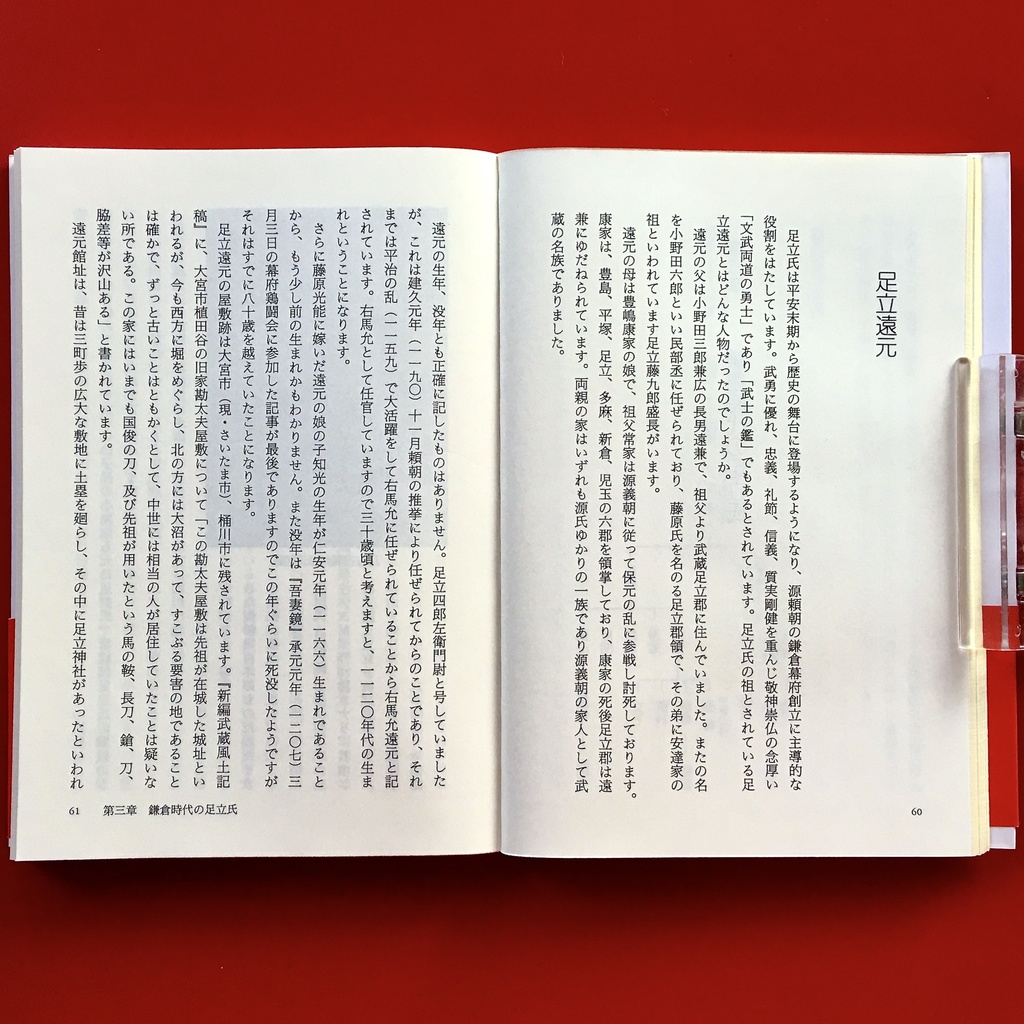 足立遠元
足立氏は平安末期から歴史の舞台に登場するようになり、源頼朝の鎌倉幕府創立に主導的な
役割をはたしています。武勇に優れ、忠義、礼節、信義、質実剛健を重んじ敬神崇仏の念厚い
「文武両道の勇士」であり「武士の鑑」でもあるとされています。足立氏の祖とされている足
立遠元とはどんな人物だったのでしょうか。
遠元の父は小野田三郎兼広の長男遠兼で、祖父より武蔵足立郡に住んでいました。またの名
を小野田六郎といい民部丞に任ぜられており、藤原氏を名のる足立郡領で、その弟に安達家の
祖といわれています足立藤九郎盛長がいます。
遠元の母は豊嶋康家の娘で、祖父常家は源義朝に従って保元の乱に参戦し討死しております。
康家は、豊島、平塚、足立、多麻、新倉、児玉の六郡を領掌しており、康家の死後足立郡は遠
兼にゆだねられています。両親の家はいずれも源氏ゆかりの一族であり源義朝の家人として武
蔵の名族でありました。
60
遠元の生年、没年とも正確に記したものはありません。足立四郎左衛門尉と号していました
が、これは建久元年（一一九〇）十一月頼朝の推挙により任ぜられてからのことであり、それ
までは平治の乱（一一五九）で大活躍をして右馬允に任ぜられていることから右馬允遠元と記
されています。右馬允として任官していますので三十歳頃と考えますと、一一二〇年代の生ま
れということになります。
さらに藤原光能に嫁いだ遠元の娘の子知光の生年が仁安元年（一一六六）生まれであること
から、もう少し前の生まれかもわかりません。また没年は『吾妻鏡』承元元年（一二〇七）三
月三日の幕府鶏闘会に参加した記事が最後でありますのでこの年ぐらいに死没したようですが
それはすでに八十歳を越えていたことになります。
足立遠元の屋敷跡は大宮市（現・さいたま市）、桶川市に残されています。『新編武蔵風土記
稿』に、大宮市植田谷の旧家勘太夫屋敷について「この勘太夫屋敷は先祖が在城した城址とい
われるが、今も西方に堀をめぐらし、北の方には大沼があって、すこぶる要害の地であること
は確かで、ずっと古いことはともかくとして、中世には相当の人が居住していたことは疑いな
い所である。この家にはいまでも国俊の刀、及び先祖が用いたという馬の鞍、長刀、鎗、刀、
脇差等が沢山ある」と書かれています。
遠元館址は、昔は三町歩の広大な敷地に土塁を廻らし、その中に足立神社があったといわれ
61 第三章 鎌倉時代の足立氏